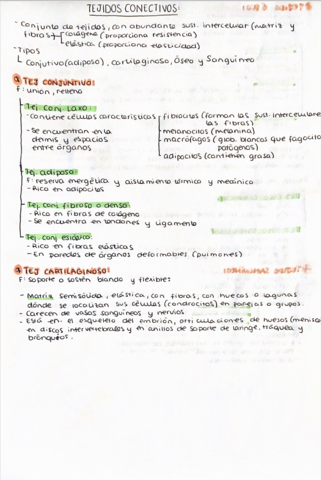 TEJIDOS CONECTIVOS:
- Conjunto de tejidos, con abundante sust. intercelular (matriz y
fibras) colágena (proporciona resistencia)
elástica (proporciona elasticidad)
- Tipos
Conjuntivo (adiposo), cartilaginoso, Óseo y Sanguíneo
TEJ CONJUNTIVO:
F: unión, relleno
Tej. conj. Laxo:
- contiene células características
fibrocitos (forman las sust. intercelulares
las fibras)
melanocitos (melanina)
macrófagos (glob. blancos que fagocit
patógenos)
adipocitos (contienen grasa)
- Se encuentran en la
dermis y espacios
entre órganos
Tej. adiposo:
F: reserva energética y aislamiento térmico y mecánico
- Rico en adipocitos
Tej. conj fibroso o denso:
- Rico en fibras de colágeno
- Se encuentra en tendones y ligamento
Tej. conj elástico:
- Rico en fibras elásticas
- En paredes de órganos deformables (pulmones)
TEJ CARTILAGINOSO:
F: soporte o sostén blando y flexible:
- Matriz semisólida, elástica, con fibras, con huecos o lagunas
dónde se localizan sus células (condrocitos) en parejas o grupos.
- Carecen de vasos sanguíneos y nervios
- Está en: el esqueleto del embrión, articulaciones de huesos (menisc
en discos intervertebrales y en anillos de soporte de laringe, tráquea y
bronquios.